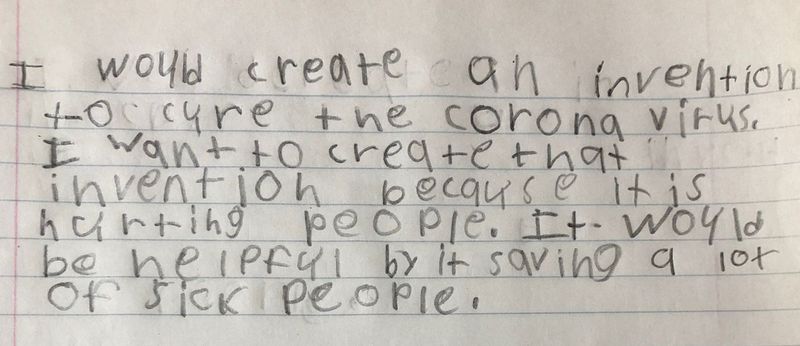 I would create an invention
to cure the corona virus.
I want to create that
invention because it is
hurting people. It would
be helpful by it saving a lot
of sick people.